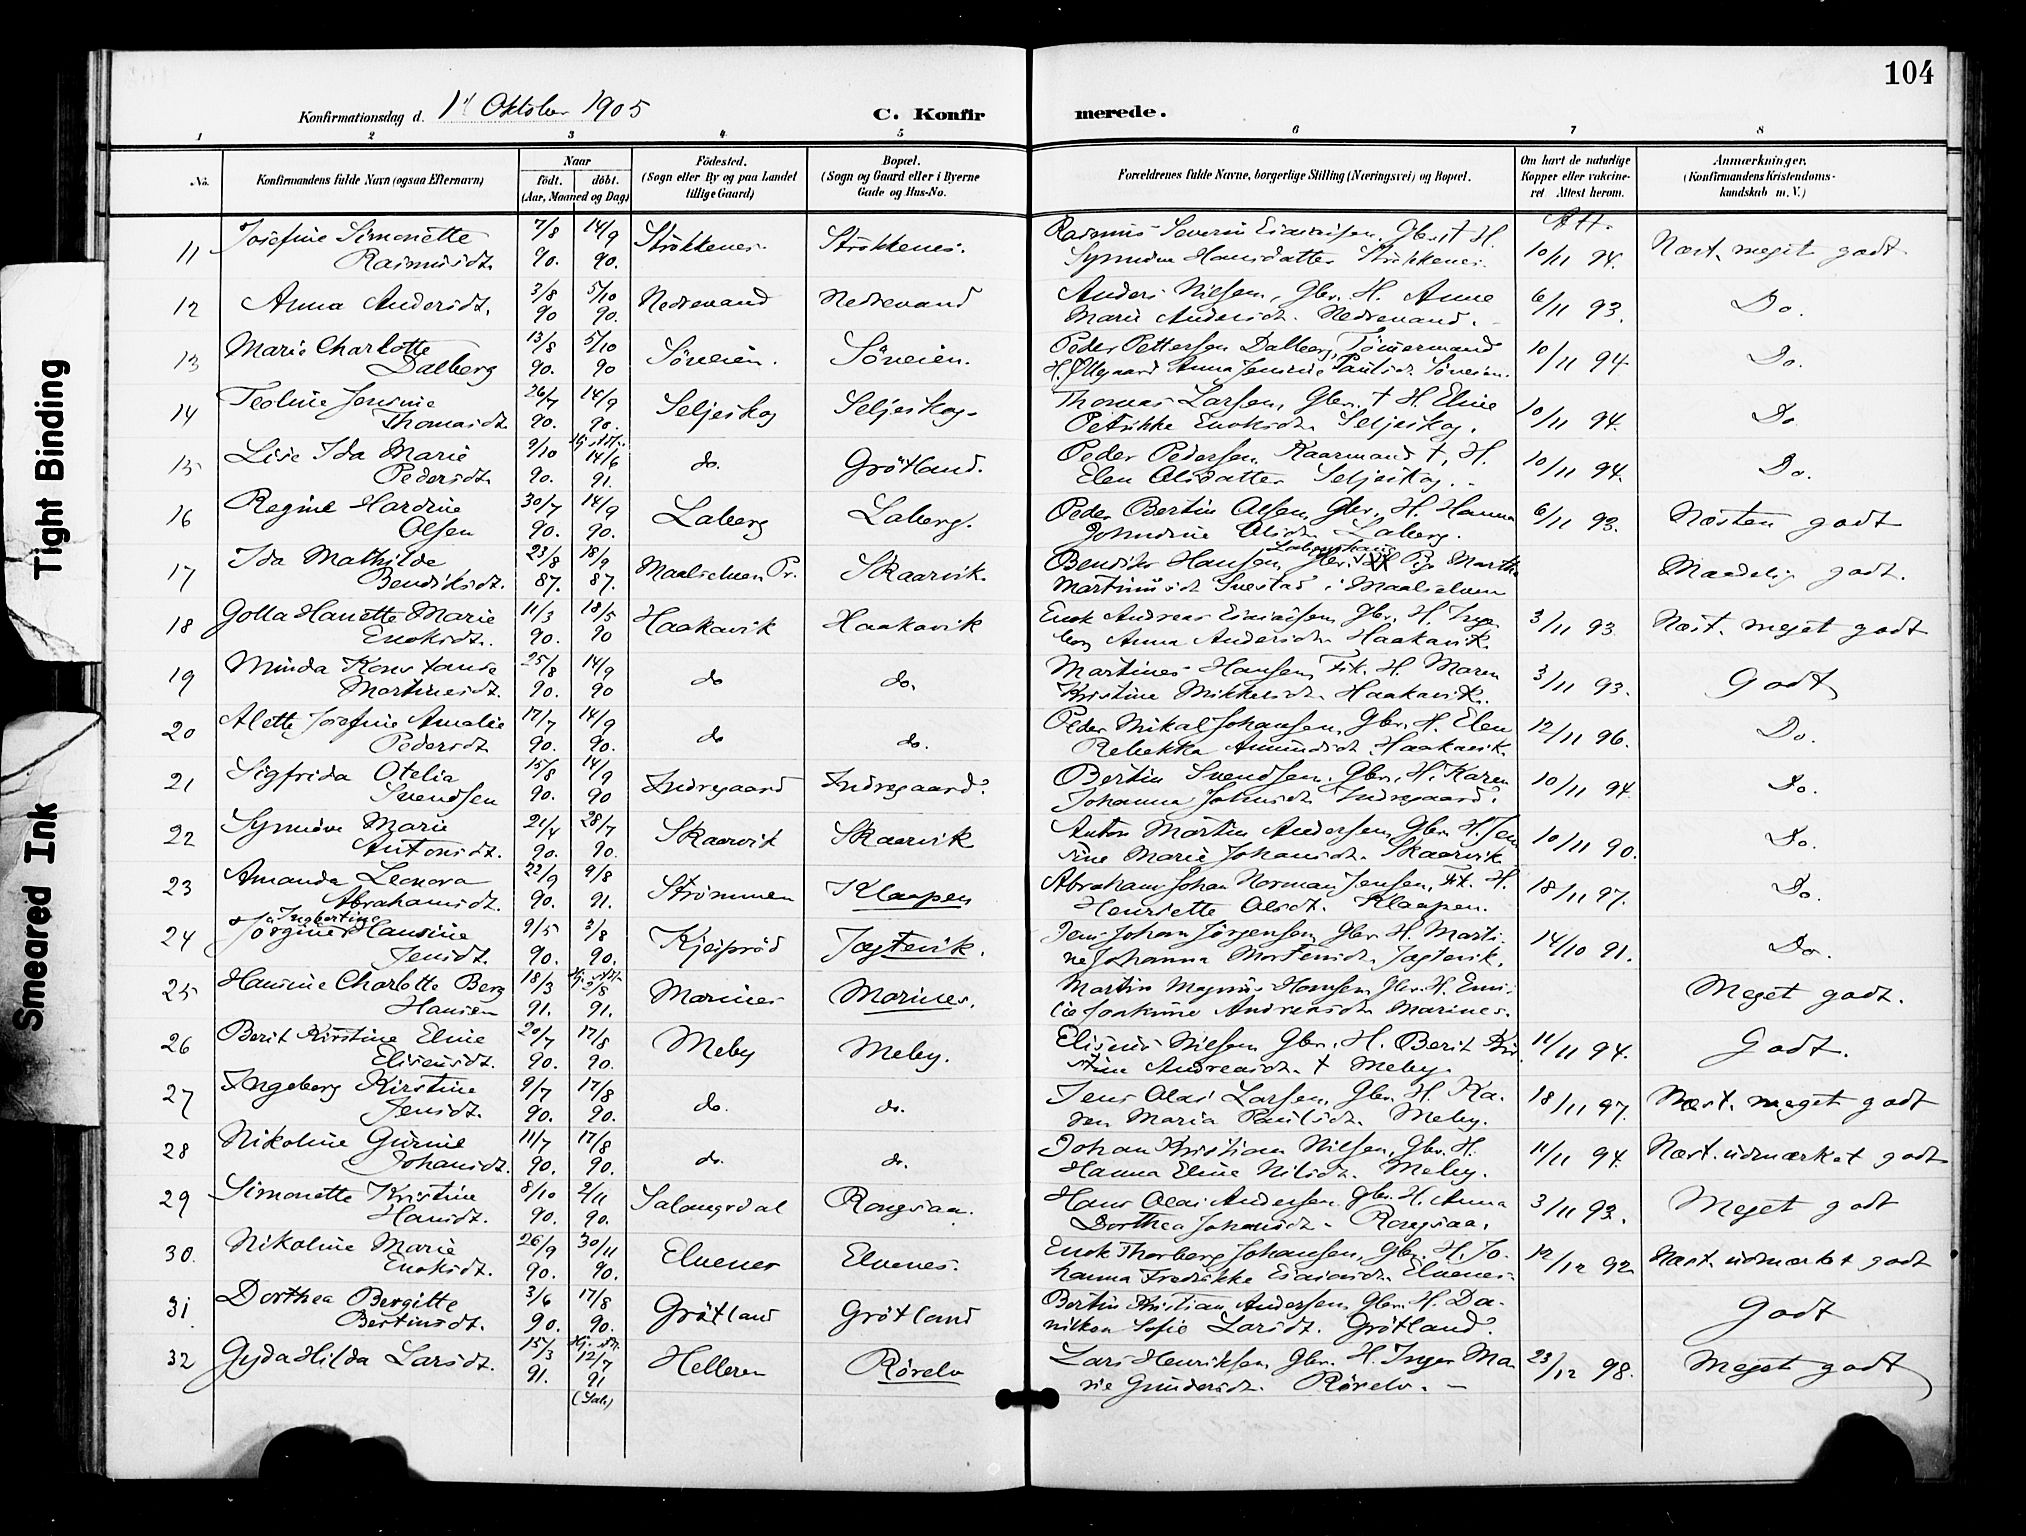 104
Konfirmationsdag d. 1ste Oktober 1905
C. Konfirmerede.
1 2 3 4 5 6 7 8
No.
Konfirmandens fulde Navn (ogsaa Efternavn)
Naar
født. døbt.
(Aar, Maaned og Dag)
Fødested.
(Sogn eller By og paa Landet
tillige Gaard)
Bopæl.
(Sogn og Gaard eller i Byerne
Gade og Hus-No.
Forældrenes fulde Navne, borgerlige Stilling (Næringsvei) og Bopæl.
Om havt de naturlige
Kopper eller vakcine-
ret Attest herom.
Anmærkninger.
(Konfirmandens Kristendoms-
kundskab m. V.)
Att.
11 Josefine Simonette 7/8 14/9 Strokkenes. Strokkenes. Rasmus Severin Esaiasen, Gbr. † H.
Rasmusdt. 90. 90. Synnøve Hansdatter Strokkenes. 10/11 94. Næst. meget godt
12 Anna Andersdt. 3/8 5/10 Nedrevand Nedrevand Anders Nilsen, Gbr. H. Anne 6/11 93. Do.
90 90. Marie Andersdt. Nedrevand.
13 Marie Charlotte 13/8 5/10 Søveien. Søveien. Peder Pettersen Dalberg, Tømermand 10/11 94. Do.
Dalberg 90. 90 H. Ellegaard Anna Jensine Paulsdt. Søveien.
14 Teoline Jensine 26/7 14/9 Seljeskog Seljeskog. Thomas Larsen, Gbr. † H. Eline 10/11 94. Do.
Thomasdt. 90. 90. Petrikke Enoksdt. Seljeskog.
15 Lise Ida Marie 9/10 Hj. dbt. 14/6 do. Grötland. Peder Pedersen Kaarmand †, H. 10/11 94. Do.
Pedersdt. 90. 91. Elen Olsdatter Seljeskog.
16 Regine Hardine 30/7 14/9 Laberg Laberg. Peder Bertin Olsen, Gbr. H. Hanna 6/11 93. Næsten godt
Olsen 90. 90. Olsdt. Laberg.
17 Ida Mathilde 23/8 18/9 Maalselven Pr. Skaarvik. Bendik Hansen, Gbr. Pige Martha Maadelig godt.
Bendiksdt. 87. 87. Martinusdt. i Maalselven
18 Golla Hanette Marie 11/3 18/5 Haakavik Haakavik Enok Andreas Esaiasen Gbr. H. Inge- 3/11 93 Næst. meget godt
Enoksdt. 90. 90 borg Anna Andersdt. Haakavik.
19 Minda Konstanse 25/8 14/9 do do. Martines Hansen Fisk. H. Maren 3/11 93. Godt
Martinesdt. 90. 90 Kristine Mikkelsdt. Haakavik.
20 Alette Josefine Amalie 17/7 14/9 do do. Peder Mikal Johansen, Gbr. H. Elen 12/11 96. Do.
Pedersdt 90. 90. Rebekka Amundsdt. Haakavik.
21 Sigfrida Otelia 15/8 14/9 Indregaard Indregaard. Bertin Svendsen. Gbr. H. Karen 10/11 94. Do.
Svendsen 90. 90 Johanna Johnsdt. Indregaard.
22 Synnöve Marie 21/4 28/7 Skaarvik Skaarvik Anton Martin Andersen, Gbr. H. Jen 10/11 90. Do.
Antonsdt. 90. 90. sine Marie Johansdt. Skaarvik
23 Amanda Leonora 22/9 9/8 Strömmen Klaapen Abraham Johan Norman Jensen, Fisk. H. 18/11 97. Do.
Abrahamsdt. 90. 91. Henriette Olsdt. Klaapen.
24 Jörgine Ingebertine Hansine 9/5 3/8 Kjeipröd Jægtevik. Jens Johan Jörgensen, Gbr. H. Marti- 14/10 91. Do.
Jensdt. 90. 90. ne Johanna Mortensdt. Jægtevik.
25 Hansine Charlotte Berg 18/3 Hj. dbt. 2/8 Marines Marines. Martin Magnus Hansen, Gbr. H. Emi- Meget godt.
Hansen 91. 91. lie Joakime Andreasdt. Marines.
26 Berit Kirstine Eline 20/7 17/8 Meby Meby. Eliseus Nilsen Gbr. H. Berit Kir 11/11 94. Godt.
Eliseusdt. 90. 90. stine Andreasdt. † Meby.
27 Ingeborg Kirstine 9/7 17/8 do. do. Jens Olai Larsen, Gbr. H. Ka- 18/11 97. Næst. meget godt
Jensdt. 90. 90. ren Maria Paulsdt. Meby.
28 Nikoline Gurine 11/7 17/8 do. do. Johan Kristian Nilsen, Gbr. H. 11/11 94. Næst. udmærket godt
Johansdt. 90. 90. Hanna Eline Nilsdt. Meby.
29 Simonette Kristine 8/10 2/11 Salangsdal Rongsaa. Hans Olai Andersen Gbr. H. Anna 3/11 93. Meget godt
Hansdt. 90. 90. Dorthea Johansdt. Rongsaa.
30. Nikoline Marie 26/9 30/11 Elvenes Elvenes. Enok Thorberg Johansen, Gbr. H. Jo- 12/12 92 Næst. udmærket godt
Enoksdt. 90. 90. hanna Fredrikke Esaiasdt. Elvenes.
31. Dorthea Bergitte 3/6 17/8 Grötland Grötland Bertin Kristian Andersen Gbr. H. Da- Godt
Bertinsdt. 90. 90. nikka Sofie Larsdt. Grötland.
32 Gyda Hilda Larsdt. 15/3 Hj. dbt. 12/7 Helleren Rörelv Lars Henriksen, Gbr. H. Inger Ma 23/12 98. Meget godt
91. 91 (Sal.) rie Gundersdt. Rörelv.
Tight Binding
Smeared Ink